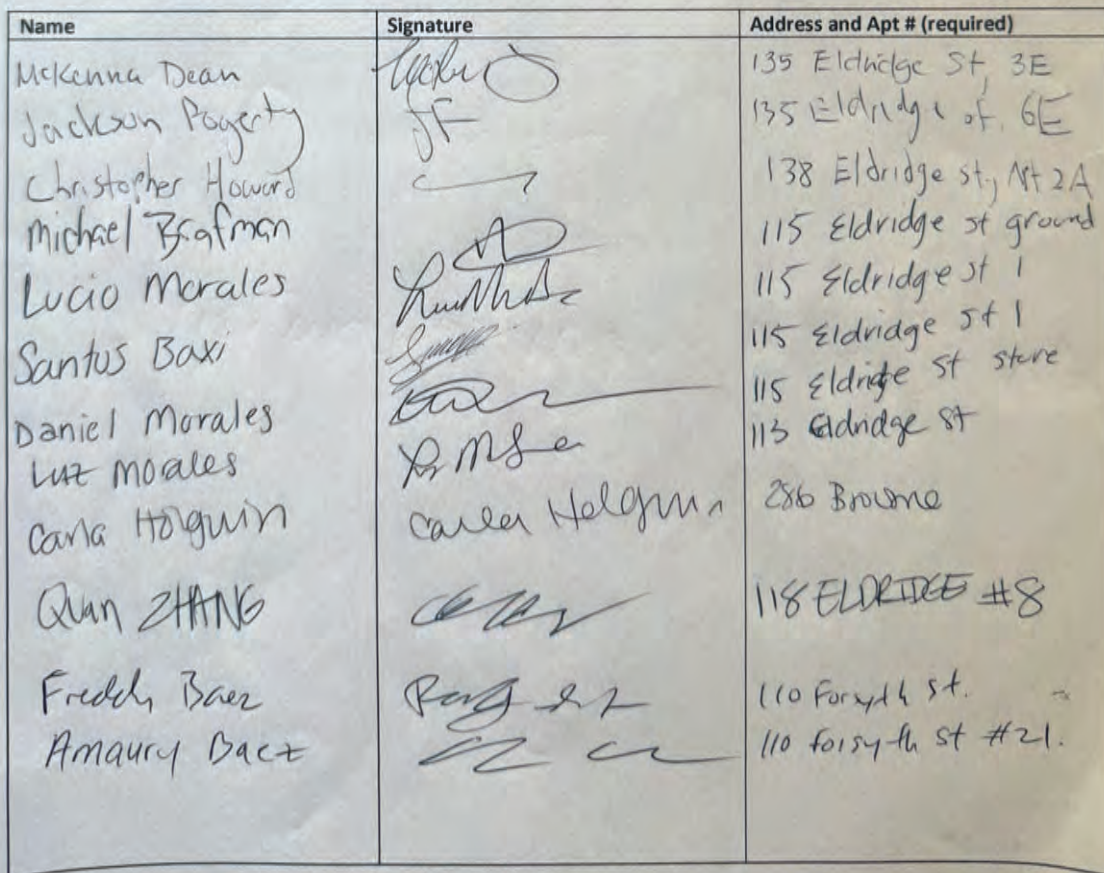 Name Signature Address and Apt # (required)
McKenna Dean 135 Eldridge St, 3E
Jackson Fogerty JF 135 Eldridge st. 6E
Christopher Howard 138 Eldridge st, Apt 2A
Michael Brafman 115 Eldridge st ground
Lucio Morales 115 Eldridge st 1
Santos Baxi 115 Eldridge st 1
Daniel Morales 115 Eldridge st store
Luz Morales 113 Eldridge St
Carla Holguin Carla Holguin 286 Broome
Quan ZHANG 118 ELDRIDGE #8
Freddy Baez 110 Forsyth St.
Amaury Baez 110 forsyth st #21.